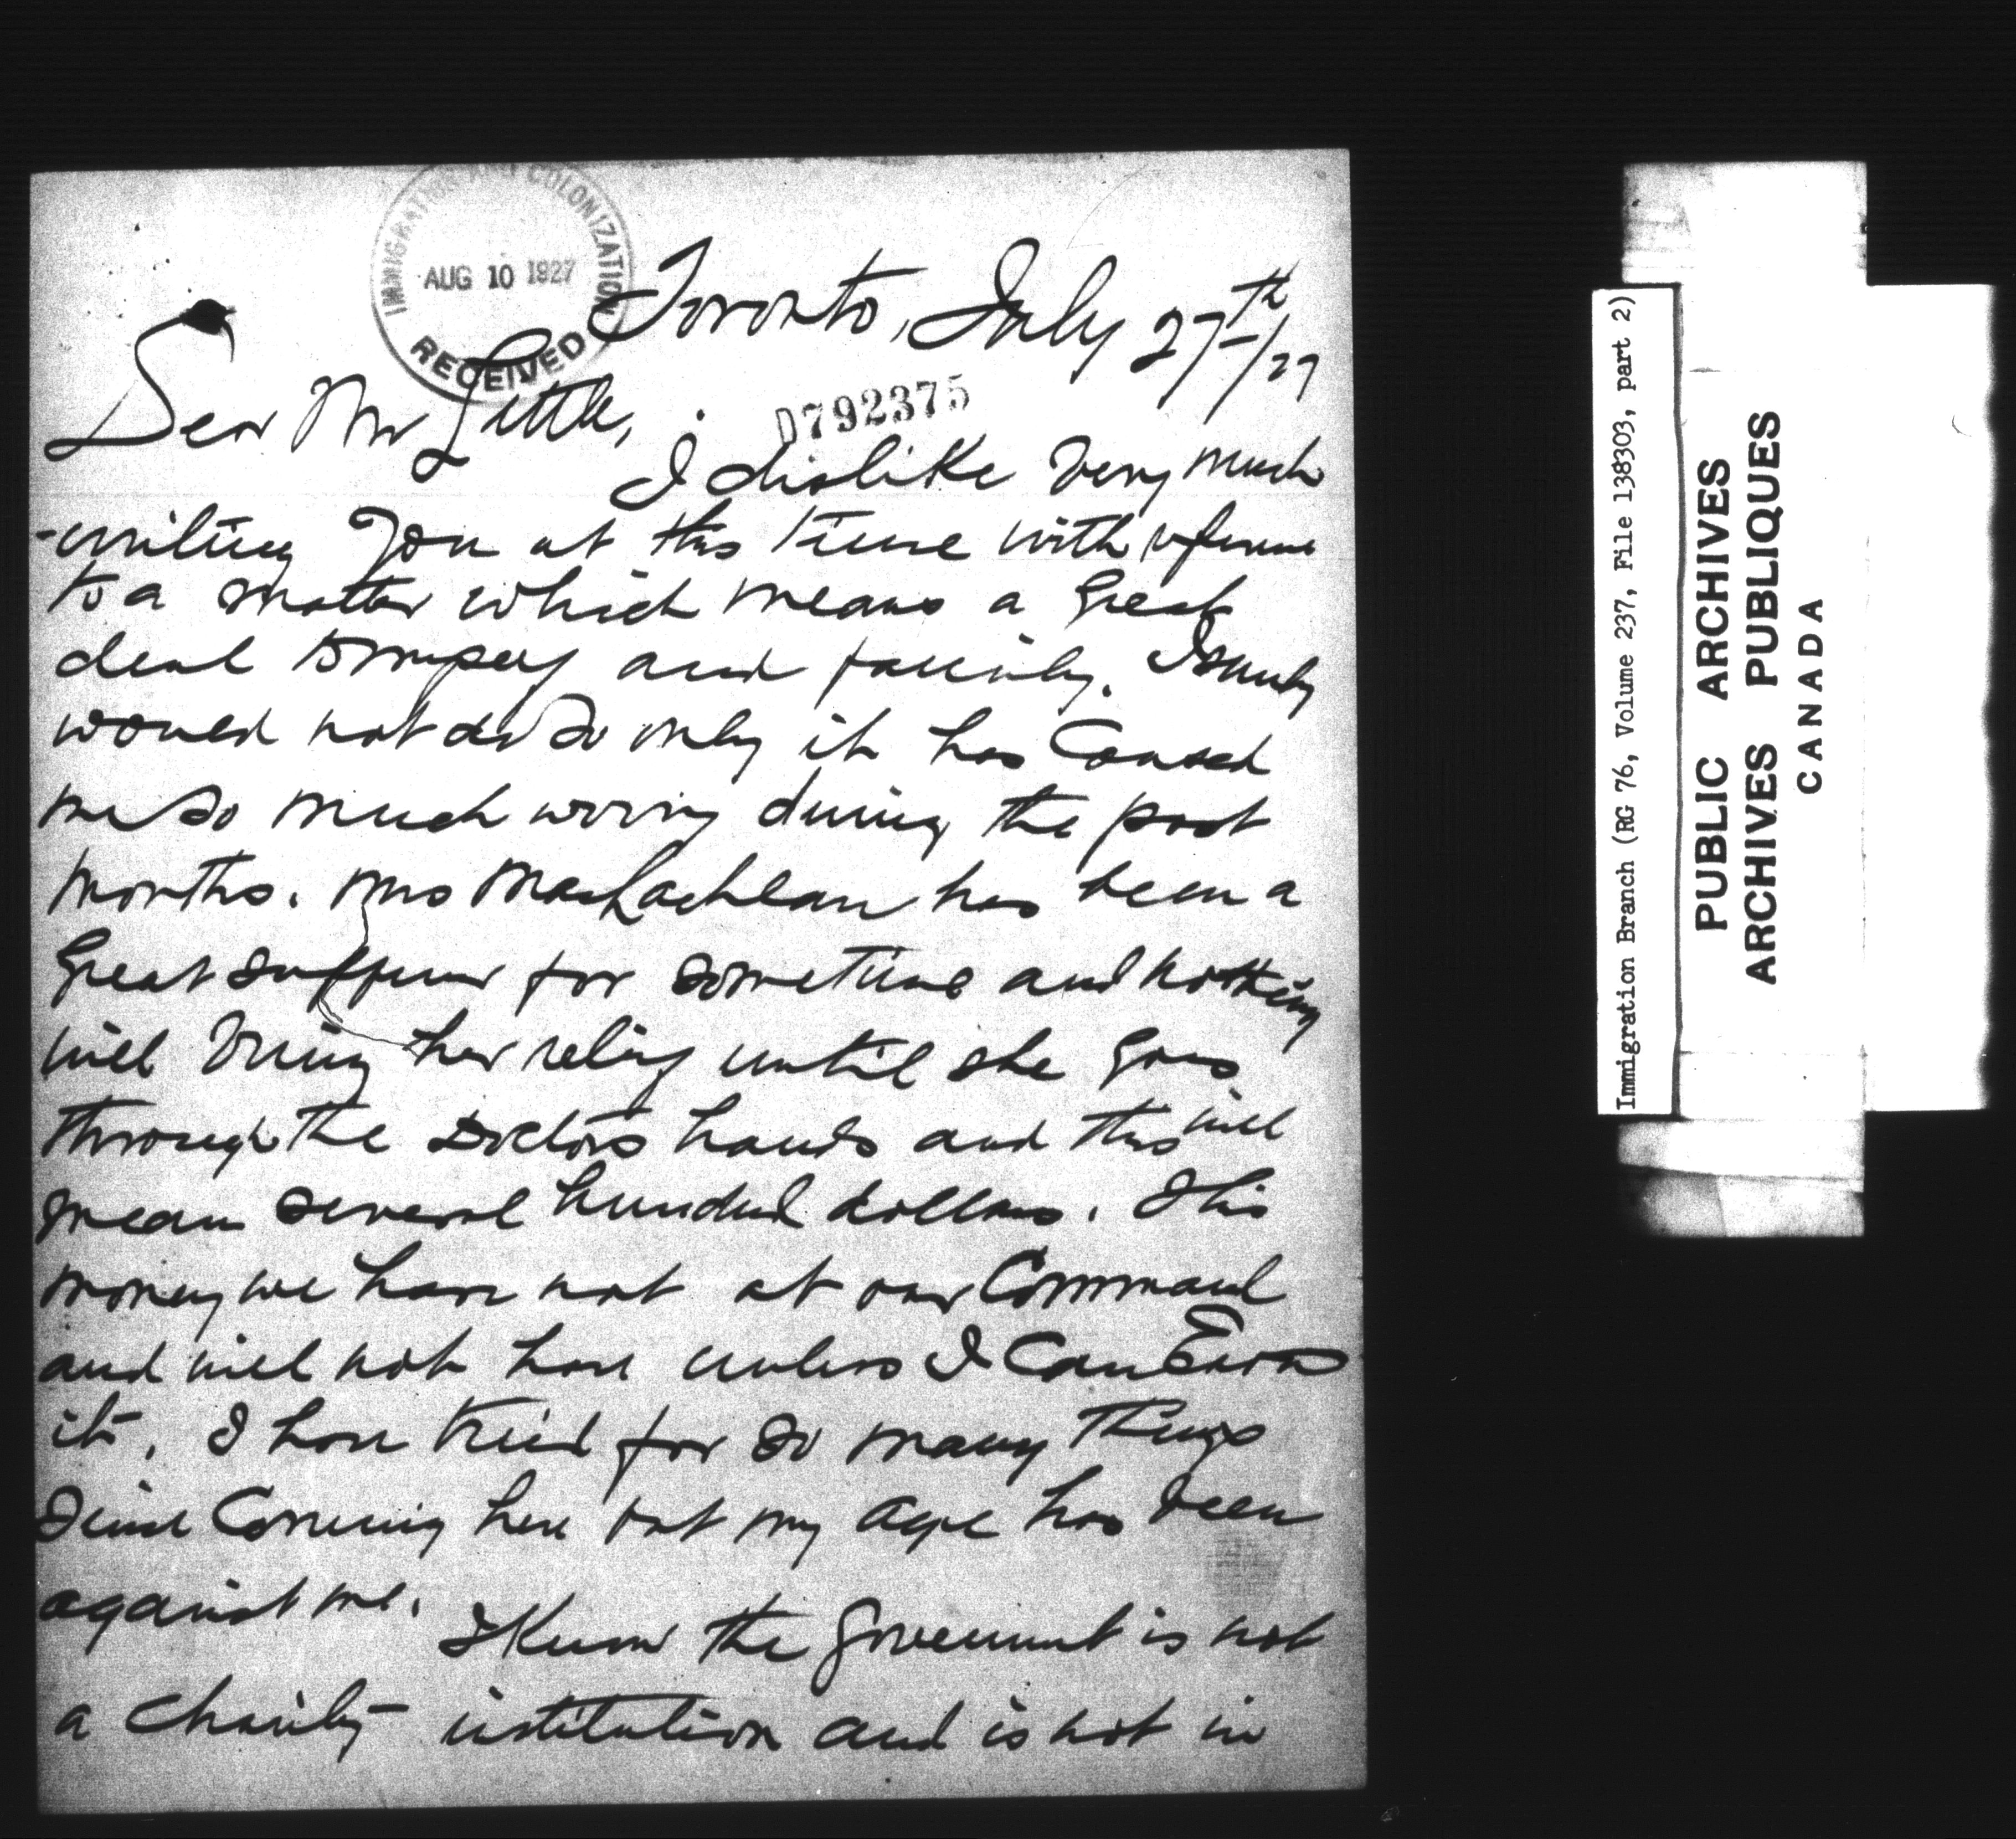 IMMIGRATION AND COLONIZATION
AUG 10 1927
RECEIVED
Toronto, July 27th/27
Dear Mr Little,
D792375
I dislike very much
writing you at this time with reference
to a matter which means a great
deal to myself and family. I surely
would not do so only it has caused
me so much worry during the past
months. Mrs MacLachlan has been a
great sufferer for sometime and nothing
will bring her relief until she goes
through the Doctors hands and this will
mean several hundred dollars. This
money we have not at our Command
and will not have unless I can Earn
it. I have tried for so many things
since Coming here but my age has been
against me.
I know the Government is not
a charity institution and is not in
Immigration Branch (RG 76, Volume 237, File 138303, part 2)
PUBLIC ARCHIVES
ARCHIVES PUBLIQUES
CANADA